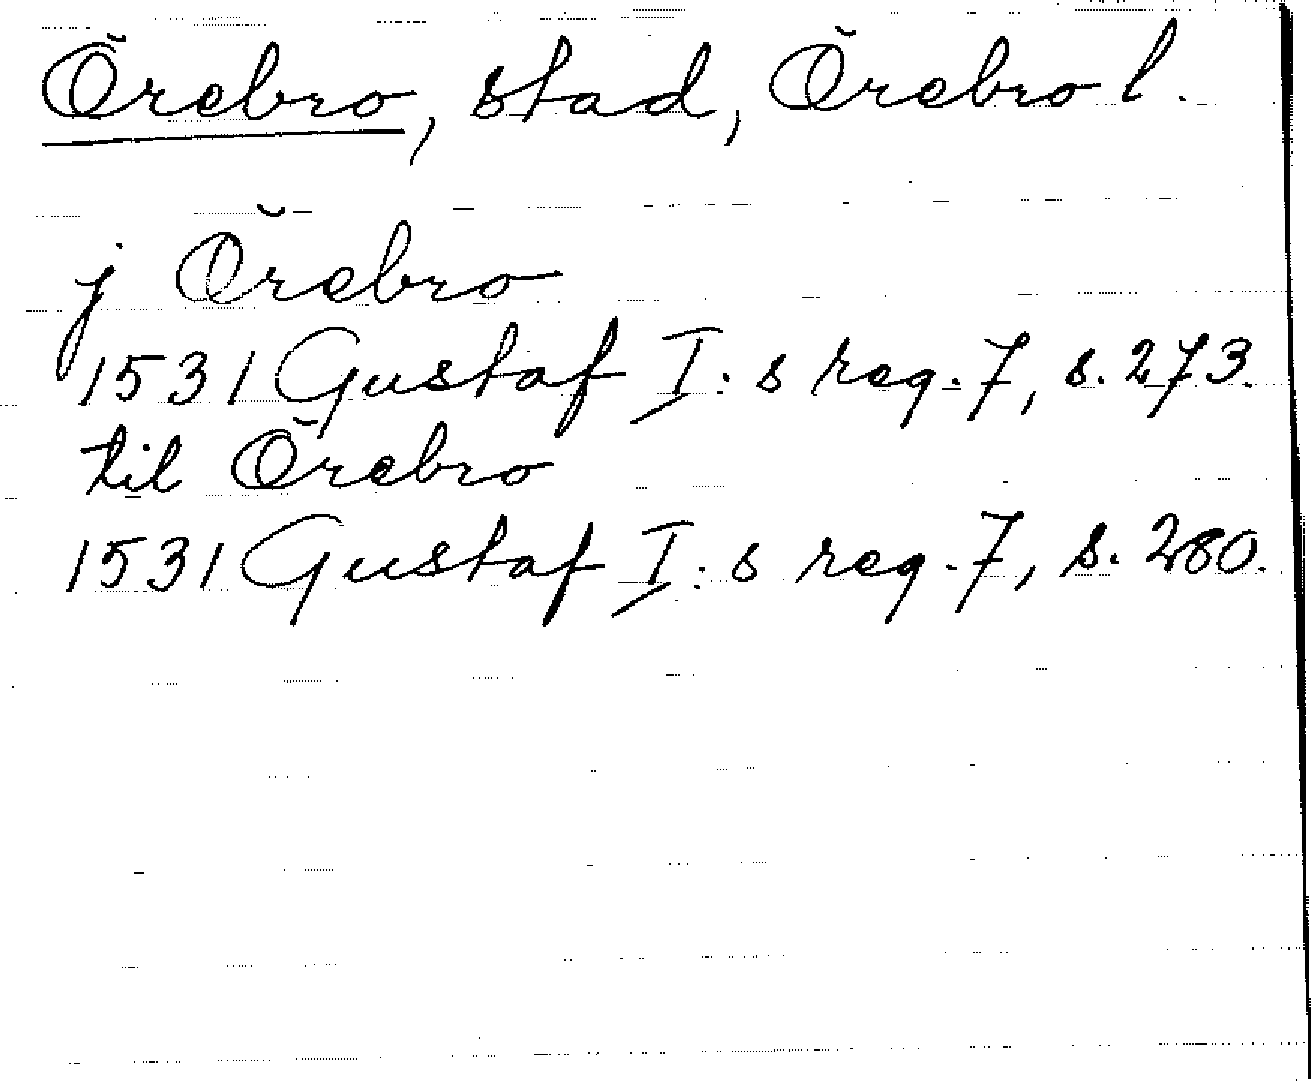 Örebro, stad, Örebro l.
j Örebro
1531 Gustaf I:s reg. 7, s. 273.
til Örebro
1531 Gustaf I:s reg. 7, s. 280.